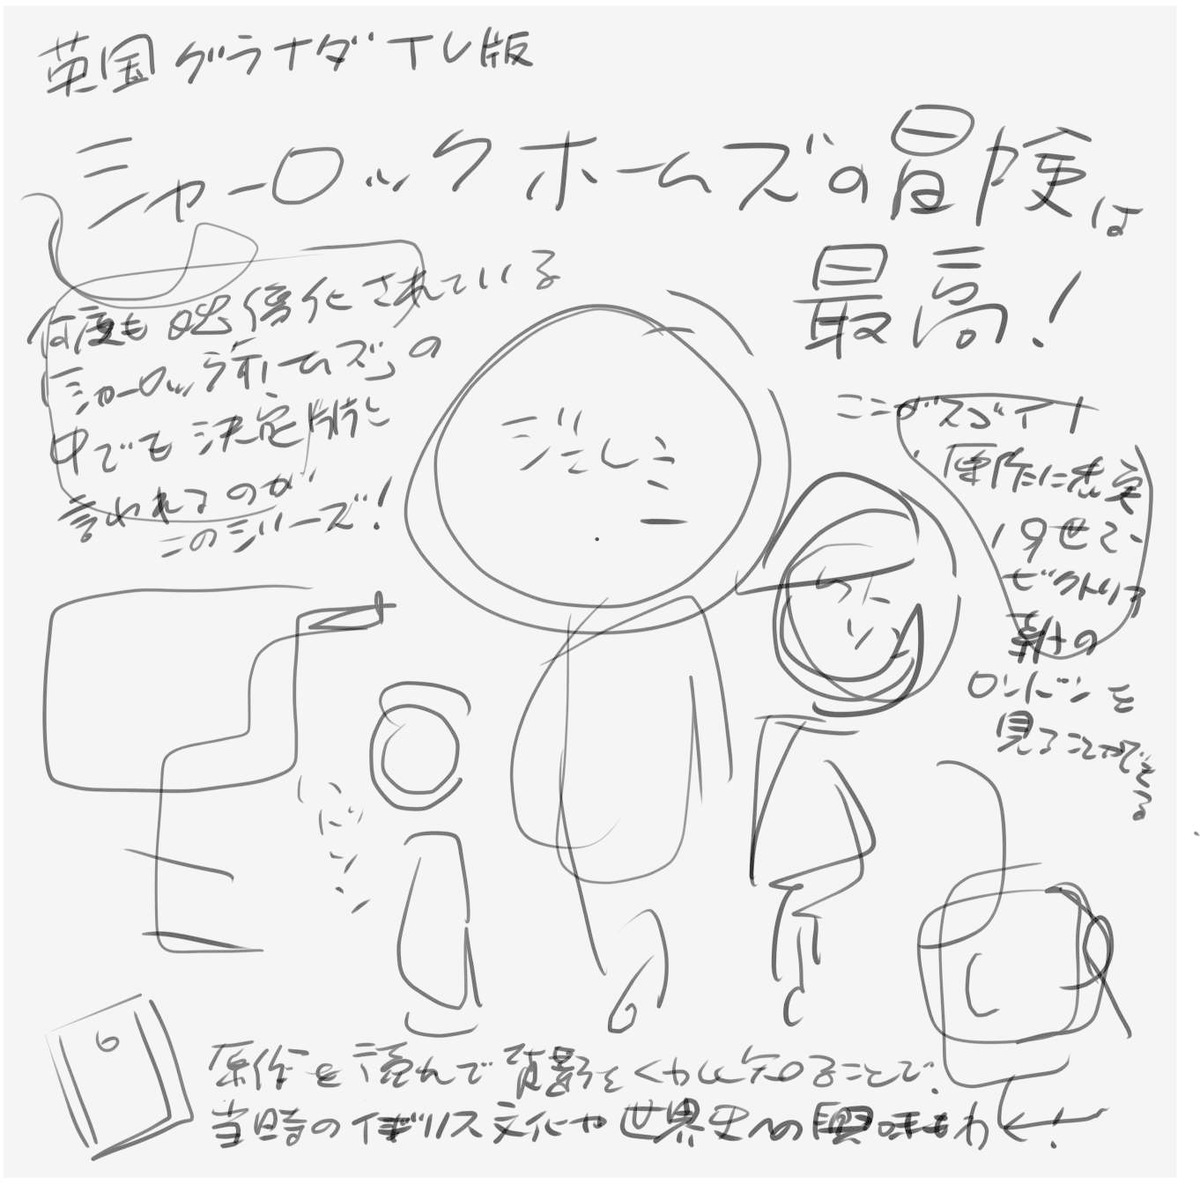 英国グラナダTV版
シャーロックホームズの冒険は
最高!
何度も映像化されている
「シャーロックホームズ」の
中でも決定版と
言われるのが
このシリーズ!
ここがスゴイ
原作に忠実
ビクトリア
朝の
ロンドンを
見ることができる
原作を読んで背景をくわしく知ることで、
当時のイギリス文化や世界史への興味もわく!